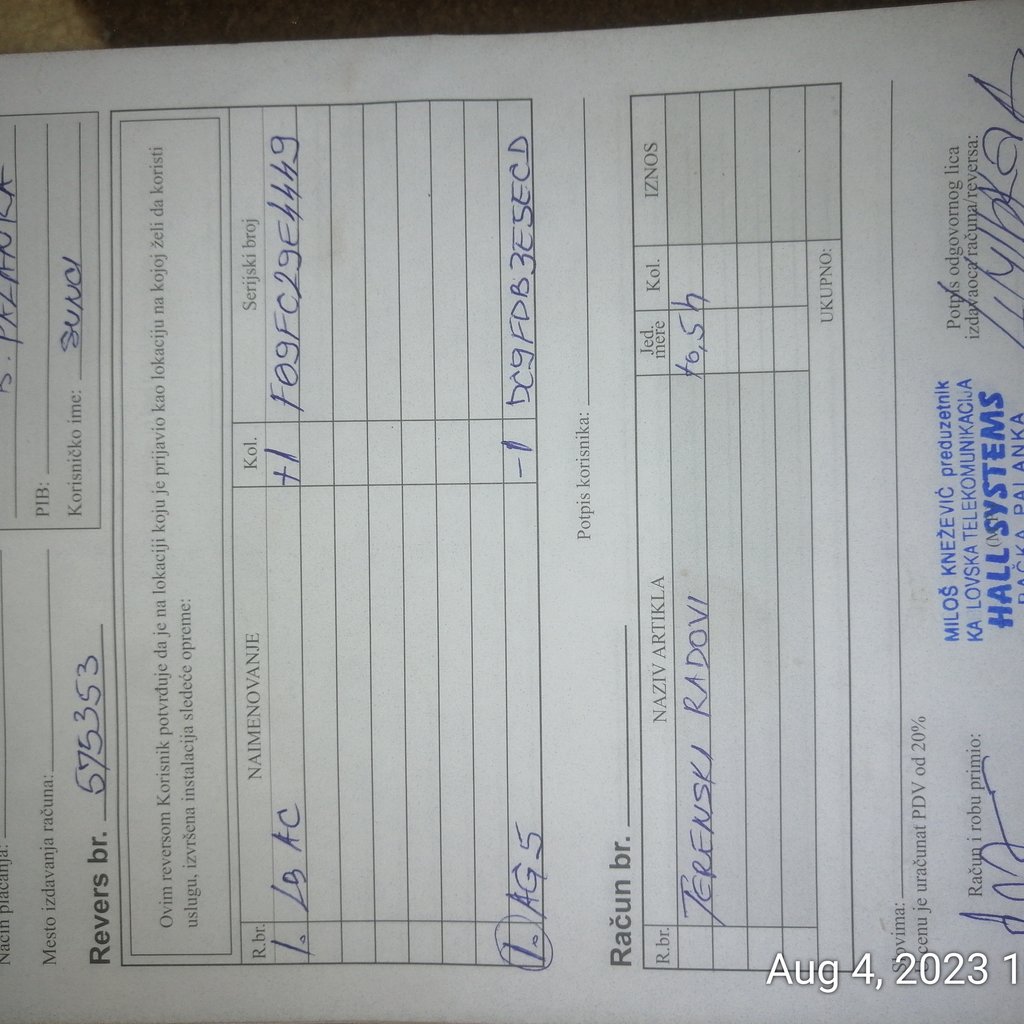 B. PALANKA
Način plaćanja:
PIB:
Mesto izdavanja računa:
Korisničko ime:
Revers br. 575353
Ovim reversom Korisnik potvrđuje da je na lokaciji koju je prijavio kao lokaciju na kojoj želi da koristi
uslugu, izvršena instalacija sledeće opreme:
R.br. NAIMENOVANJE Kol. Serijski broj
1. LB AC +1 F09FC29E4449
1. AG5 -1 DC9FDB3E5ECD
Potpis korisnika:
Račun br.
R.br. NAZIV ARTIKLA Jed. mere Kol. IZNOS
TERENSKI RADOVI to,5h
UKUPNO:
Slovima:
U cenu je uračunat PDV od 20%
Račun i robu primio:
MILOŠ KNEŽEVIĆ preduzetnik
KABLOVSKA TELEKOMUNIKACIJA
HALL SYSTEMS
BAČKA PALANKA
Potpis odgovornog lica
izdavaoca računa/reversa:
Aug 4, 2023 1